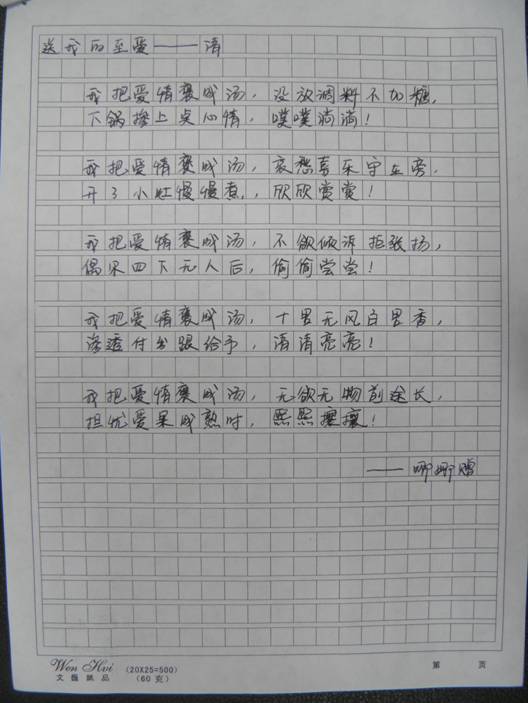 送我的至爱——清
我把爱情褒成汤，没放调料不加糖，
下锅掺上莫心情，噗噗淌淌！
我把爱情褒成汤，哀愁喜乐守在旁，
开了小灶慢慢煮，欣欣赏赏！
我把爱情褒成汤，不欲倾诉拒张扬，
偶尔四下无人后，偷偷尝尝！
我把爱情褒成汤，十里无风百里香，
渗透付出跟给予，清清亮亮！
我把爱情褒成汤，无欲无物前途长，
担忧爱果成熟时，熙熙攘攘！
——娜娜赠
Wen Hui (20X25=500) 第 页
文 纸品 (60克)